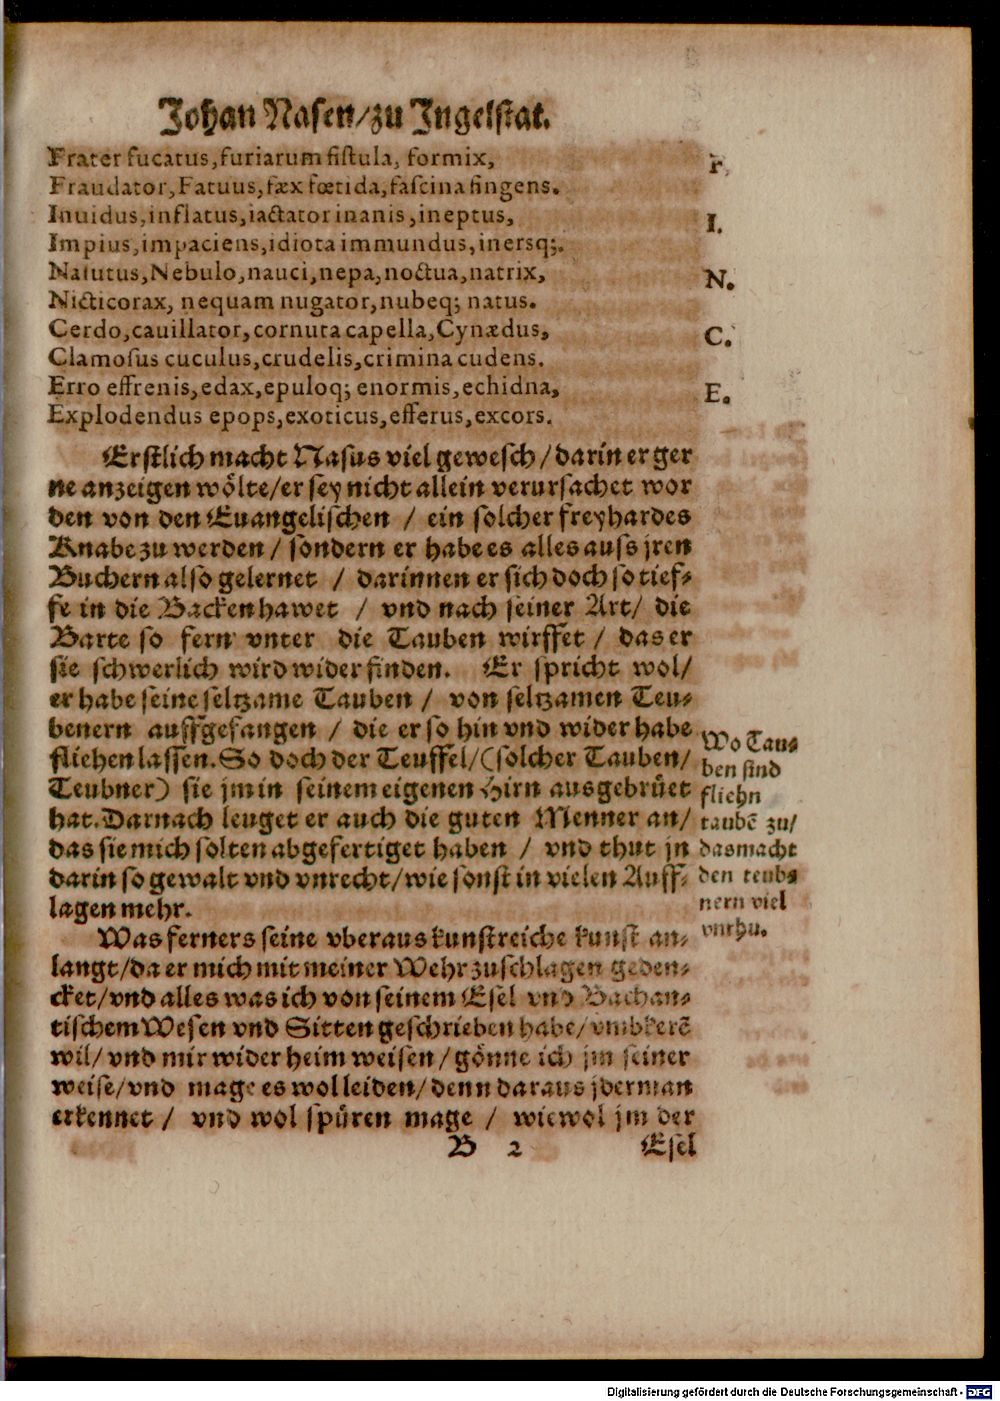 Johan Nasen/zu Ingelstat.
Frater fucatus, furiarum fistula, formix,
Fraudator, Fatuus, fæx fœtida, fascina fingens.
F.
Inuidus, inflatus, iactator inanis, ineptus,
Impius, impaciens, idiota immundus, inersq;.
I.
Nasutus, Nebulo, nauci, nepa, noctua, natrix,
Nicticorax, nequam nugator, nubeq; natus.
N.
Cerdo, cauillator, cornuta capella, Cynædus,
Clamosus cuculus, crudelis, crimina cudens.
C.
Erro effrenis, edax, epuloq; enormis, echidna,
Explodendus epops, exoticus, efferus, excors.
E.
Erstlich macht Nasus viel gewesch/darin er ger
ne anzeigen wölte/er sey nicht allein verursachet wor
den von den Euangelischen / ein solcher freyhardes
Knabe zu werden/ sondern er habe es alles auss jren
Buchern also gelernet / darinnen er sich doch so tief-
fe in die Backen hawet / vnd nach seiner Art/ die
Barte so fern vnter die Tauben wirffet / das er
sie schwerlich wird wider finden. Er spricht wol/
er habe seine seltzame Tauben / von seltzamen Teu-
benern auffgefangen / die er so hin vnd wider habe
fliehen lassen. So doch der Teuffel/(solcher Tauben/
Teubner) sie jm in seinem eigenen Hirn ausgebrüet
hat. Darnach leuget er auch die guten Menner an/
das sie mich solten abgefertiget haben / vnd thut jn
darin so gewalt vnd vnrecht/wie sonst in vielen Auff-
lagen mehr.
Wo Tau-
ben sind
fliehn
taubē zu/
das macht
den teub-
nern viel
vnrhu.
Was ferners seine vberaus kunstreiche kunst an-
langt/da er mich mit meiner Wehr zuschlagen geden-
cket/vnd alles was ich von seinem Esel vnd Bachan-
tischem Wesen vnd Sitten geschrieben habe/vmbkerē
wil/ vnd mir wider heim weisen/gönne ich jm seiner
weise/vnd mage es wol leiden/denn daraus jderman
erkennet / vnd wol spüren mage / wiewol jm der
B 2
Esel
Digitalisierung gefördert durch die Deutsche Forschungsgemeinschaft - DFG